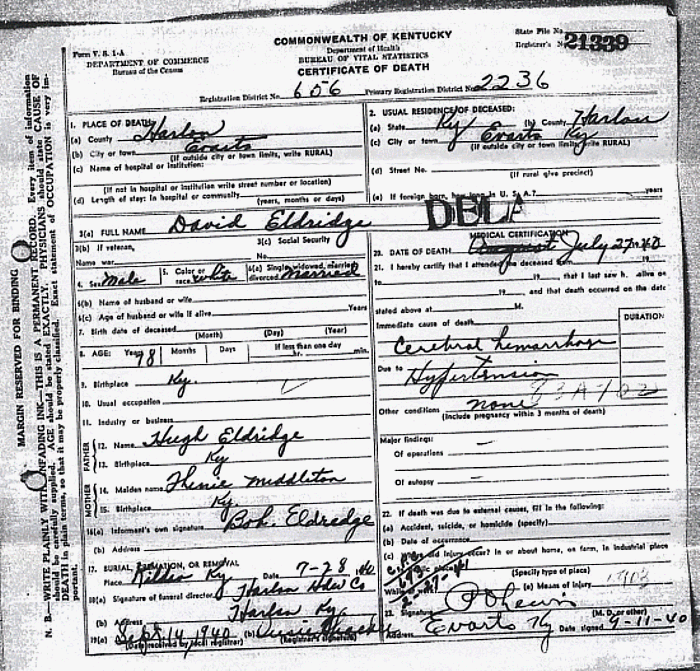 Form V. S. 1-A
COMMONWEALTH OF KENTUCKY
State File No.
DEPARTMENT OF COMMERCE
Department of Health
Registrar's No. 21339
Bureau of the Census
BUREAU OF VITAL STATISTICS
CERTIFICATE OF DEATH
Registration District No. 656 Primary Registration District No. 2236
MARGIN RESERVED FOR BINDING
N. B.—WRITE PLAINLY WITH UNFADING INK—THIS IS A PERMANENT RECORD. Every item of information
should be carefully supplied. AGE should be stated EXACTLY. PHYSICIANS should state CAUSE OF
DEATH in plain terms, so that it may be properly classified. Exact statement of OCCUPATION is very im-
portant.
1. PLACE OF DEATH
(a) County Harlan
(b) City or town Evarts
(If outside city or town limits, write RURAL)
(c) Name of hospital or institution:
(If not in hospital or institution write street number or location)
(d) Length of stay: In hospital or community
(years, months or days)
2. USUAL RESIDENCE OF DECEASED:
(a) State Ky (b) County Harlan
(c) City or town Evarts Ky
(If outside city or town limits, write RURAL)
(d) Street No.
(If rural give precinct)
(e) If foreign born, how long in U. S. A.? years
3(a) FULL NAME David Eldridge
DELA
3(b) If veteran,
Name war
3(c) Social Security
No.
4. Sex Male
5. Color or race white
6(a) Single, widowed, married, divorced married
6(b) Name of husband or wife
6(c) Age of husband or wife if alive Years
7. Birth date of deceased
(Month) (Day) (Year)
8. AGE: Years 78 Months Days If less than one day
hr. min.
9. Birthplace Ky.
10. Usual occupation
11. Industry or business
FATHER
12. Name Hugh Eldridge
13. Birthplace Ky
MOTHER
14. Maiden name Middleton
15. Birthplace Ky
16(a) Informant's own signature Bob. Eldredge
(b) Address
17. BURIAL, CREMATION, OR REMOVAL
Place Kildea Ky Date 7-28 40
18(a) Signature of funeral director Harlan Hdw Co
(b) Address Harlan Ky.
19(a) Sept 14, 1940 (b)
(Date received by local registrar) (Registrar's signature)
MEDICAL CERTIFICATION
20. DATE OF DEATH August July 27 1940
21. I hereby certify that I attended the deceased from
19 , to 19 , that I last saw h alive on
19 , and that death occurred on the date
stated above at M.
Immediate cause of death
DURATION
Cerebral hemorrhage
Due to Hypertension
Other conditions none
(Include pregnancy within 3 months of death)
Major findings:
Of operations —
Of autopsy —
22. If death was due to external causes, fill in the following:
(a) Accident, suicide, or homicide (specify)
(b) Date of occurrence
(c) Where did injury occur? In or about home, on farm, in industrial place
(Specify type of place)
(e) Means of injury
23. Signature
(M. D. or other)
Address Evarts Ky Date signed 9-11-40